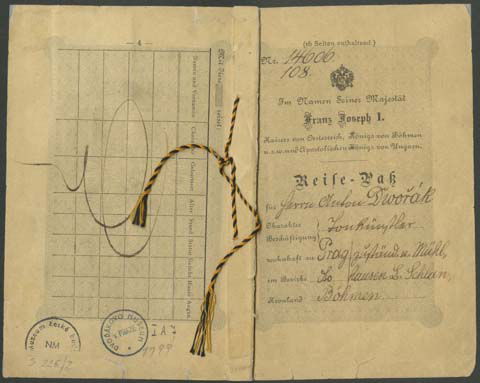 — 4 —
Mit Ihm
reiset
Namen und Vornamen
Geburtsort
Alter
Stand
Statur
Gesicht
Haare
Augen
DVOŘÁKOVO MUSEUM
V PRAZE
NM
S 226/2
1799
(16 Seiten enthaltend.)
Nr. 14606.
108.
Im Namen Seiner Majestät
Franz Joseph I.
Kaisers von Oesterreich, Königs von Böhmen
u.s.w. und Apostolischen Königs von Ungarn.
Reise-Paß
für Herrn Anton Dvořák
Charakter
Beschäftigung } Tonkünstler
wohnhaft zu Prag, zuständ. n. Mühl,
im Bezirke hausen B. Schlan,
Kronland Böhmen.